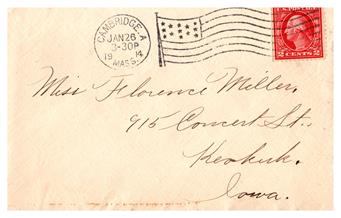 CAMBRIDGE A
JAN 26
3-30P
19 14
MASS.
2 CENTS 2
Miss Florence Miller,
915 Concert St.,
Keokuk.
Iowa.